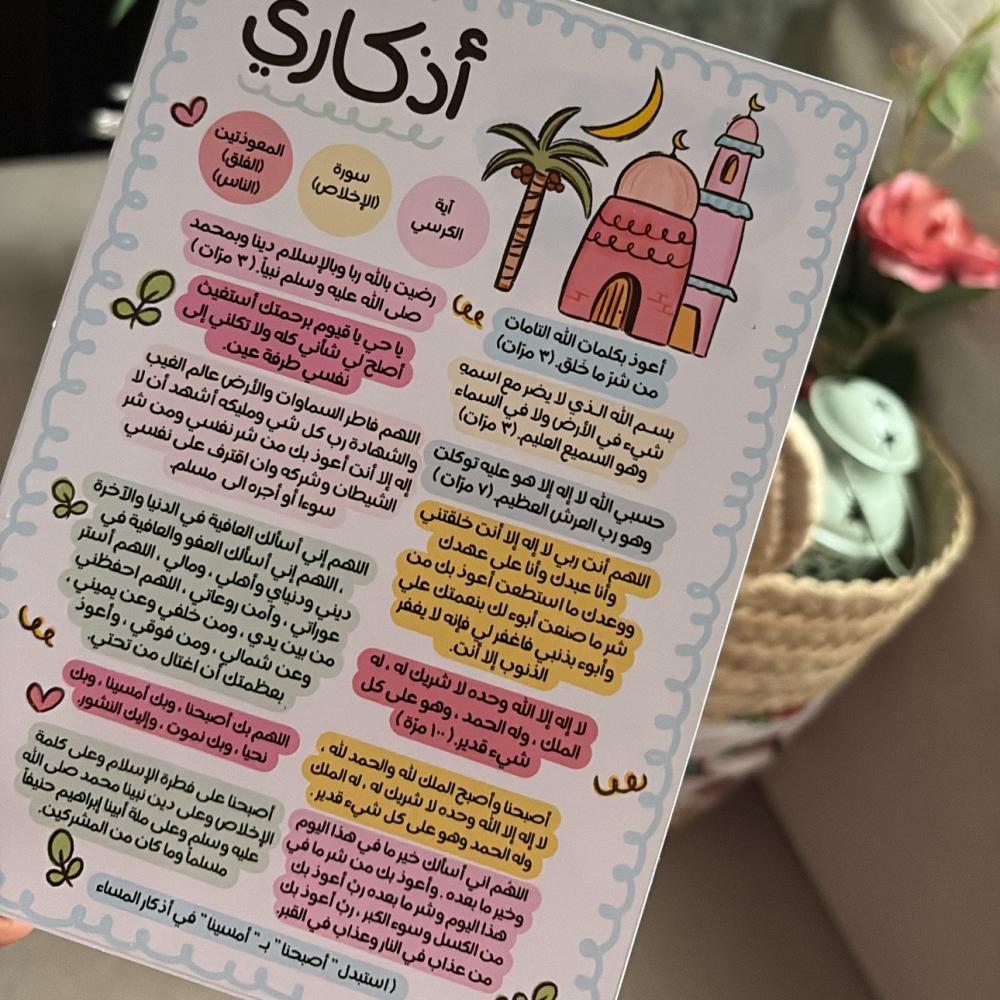 أذكاري
آية
الكرسي
سورة
(الإخلاص)
المعوذتين
(الفلق)
(الناس)
أعوذ بكلمات الله التامات
من شرّ ما خَلق. (٣ مرّات)
بسم الله الذي لا يضر مع اسمه
شيء في الأرض ولا في السماء
وهو السميع العليم. (٣ مرّات)
حسبي الله لا إله إلا هو عليه توكلت
وهو رب العرش العظيم. (٧ مرّات)
اللهم أنت ربي لا إله إلا أنت خلقتني
وأنا عبدك وأنا على عهدك
ووعدك ما استطعت أعوذ بك من
شر ما صنعت أبوء لك بنعمتك علي
وأبوء بذنبي فاغفر لي فإنه لا يغفر
الذنوب إلا أنت.
لا إله إلا الله وحده لا شريك له ، له
الملك ، وله الحمد ، وهو على كل
شيء قدير. ( ١٠٠ مرّة )
أصبحنا وأصبح الملك لله والحمد لله ،
لا إله إلا الله وحده لا شريك له ، له الملك
وله الحمد وهو على كل شيء قدير.
اللهُم اني أسألك خير ما في هذا اليوم
وخير ما بعده ، وأعوذ بك من شر ما في
هذا اليوم وشر ما بعده ربّ أعوذ بك
من الكسل وسوء الكبر ، ربّ أعوذ بك
من عذاب في النار وعذاب في القبر.
رضيت بالله ربا وبالإسلام دينا وبمحمد
صلى الله عليه وسلم نبياً. ( ٣ مرّات )
يا حي يا قيوم برحمتك أستغيث
أصلح لي شأني كله ولا تكلني إلى
نفسي طرفة عين.
اللهم فاطر السماوات والأرض عالم الغيب
والشهادة رب كل شي ومليكه أشهد أن لا
إله إلا أنت أعوذ بك من شر نفسي ومن شر
الشيطان وشركه وان اقترف على نفسي
سوءا أو أجره الى مسلم.
اللهم إني أسألك العافية في الدنيا والآخرة
، اللهم إني أسألك العفو والعافية في
ديني ودنياي وأهلي ، ومالي ، اللهم أستر
عوراتي ، وآمن روعاتي ، اللهم احفظني
من بين يدي ، ومن خلفي وعن يميني ،
وعن شمالي ، ومن فوقي ، وأعوذ
بعظمتك أن اغتال من تحتي.
اللهم بك أصبحنا ، وبك أمسينا ، وبك
نحيا ، وبك نموت ، وإليك النشور.
أصبحنا على فطرة الإسلام وعلى كلمة
الإخلاص وعلى دين نبينا محمد صلى الله
عليه وسلم وعلى ملة أبينا إبراهيم حنيفاً
مسلماً وما كان من المشركين.
( استبدل "أصبحنا" بـ "أمسينا" في أذكار المساء